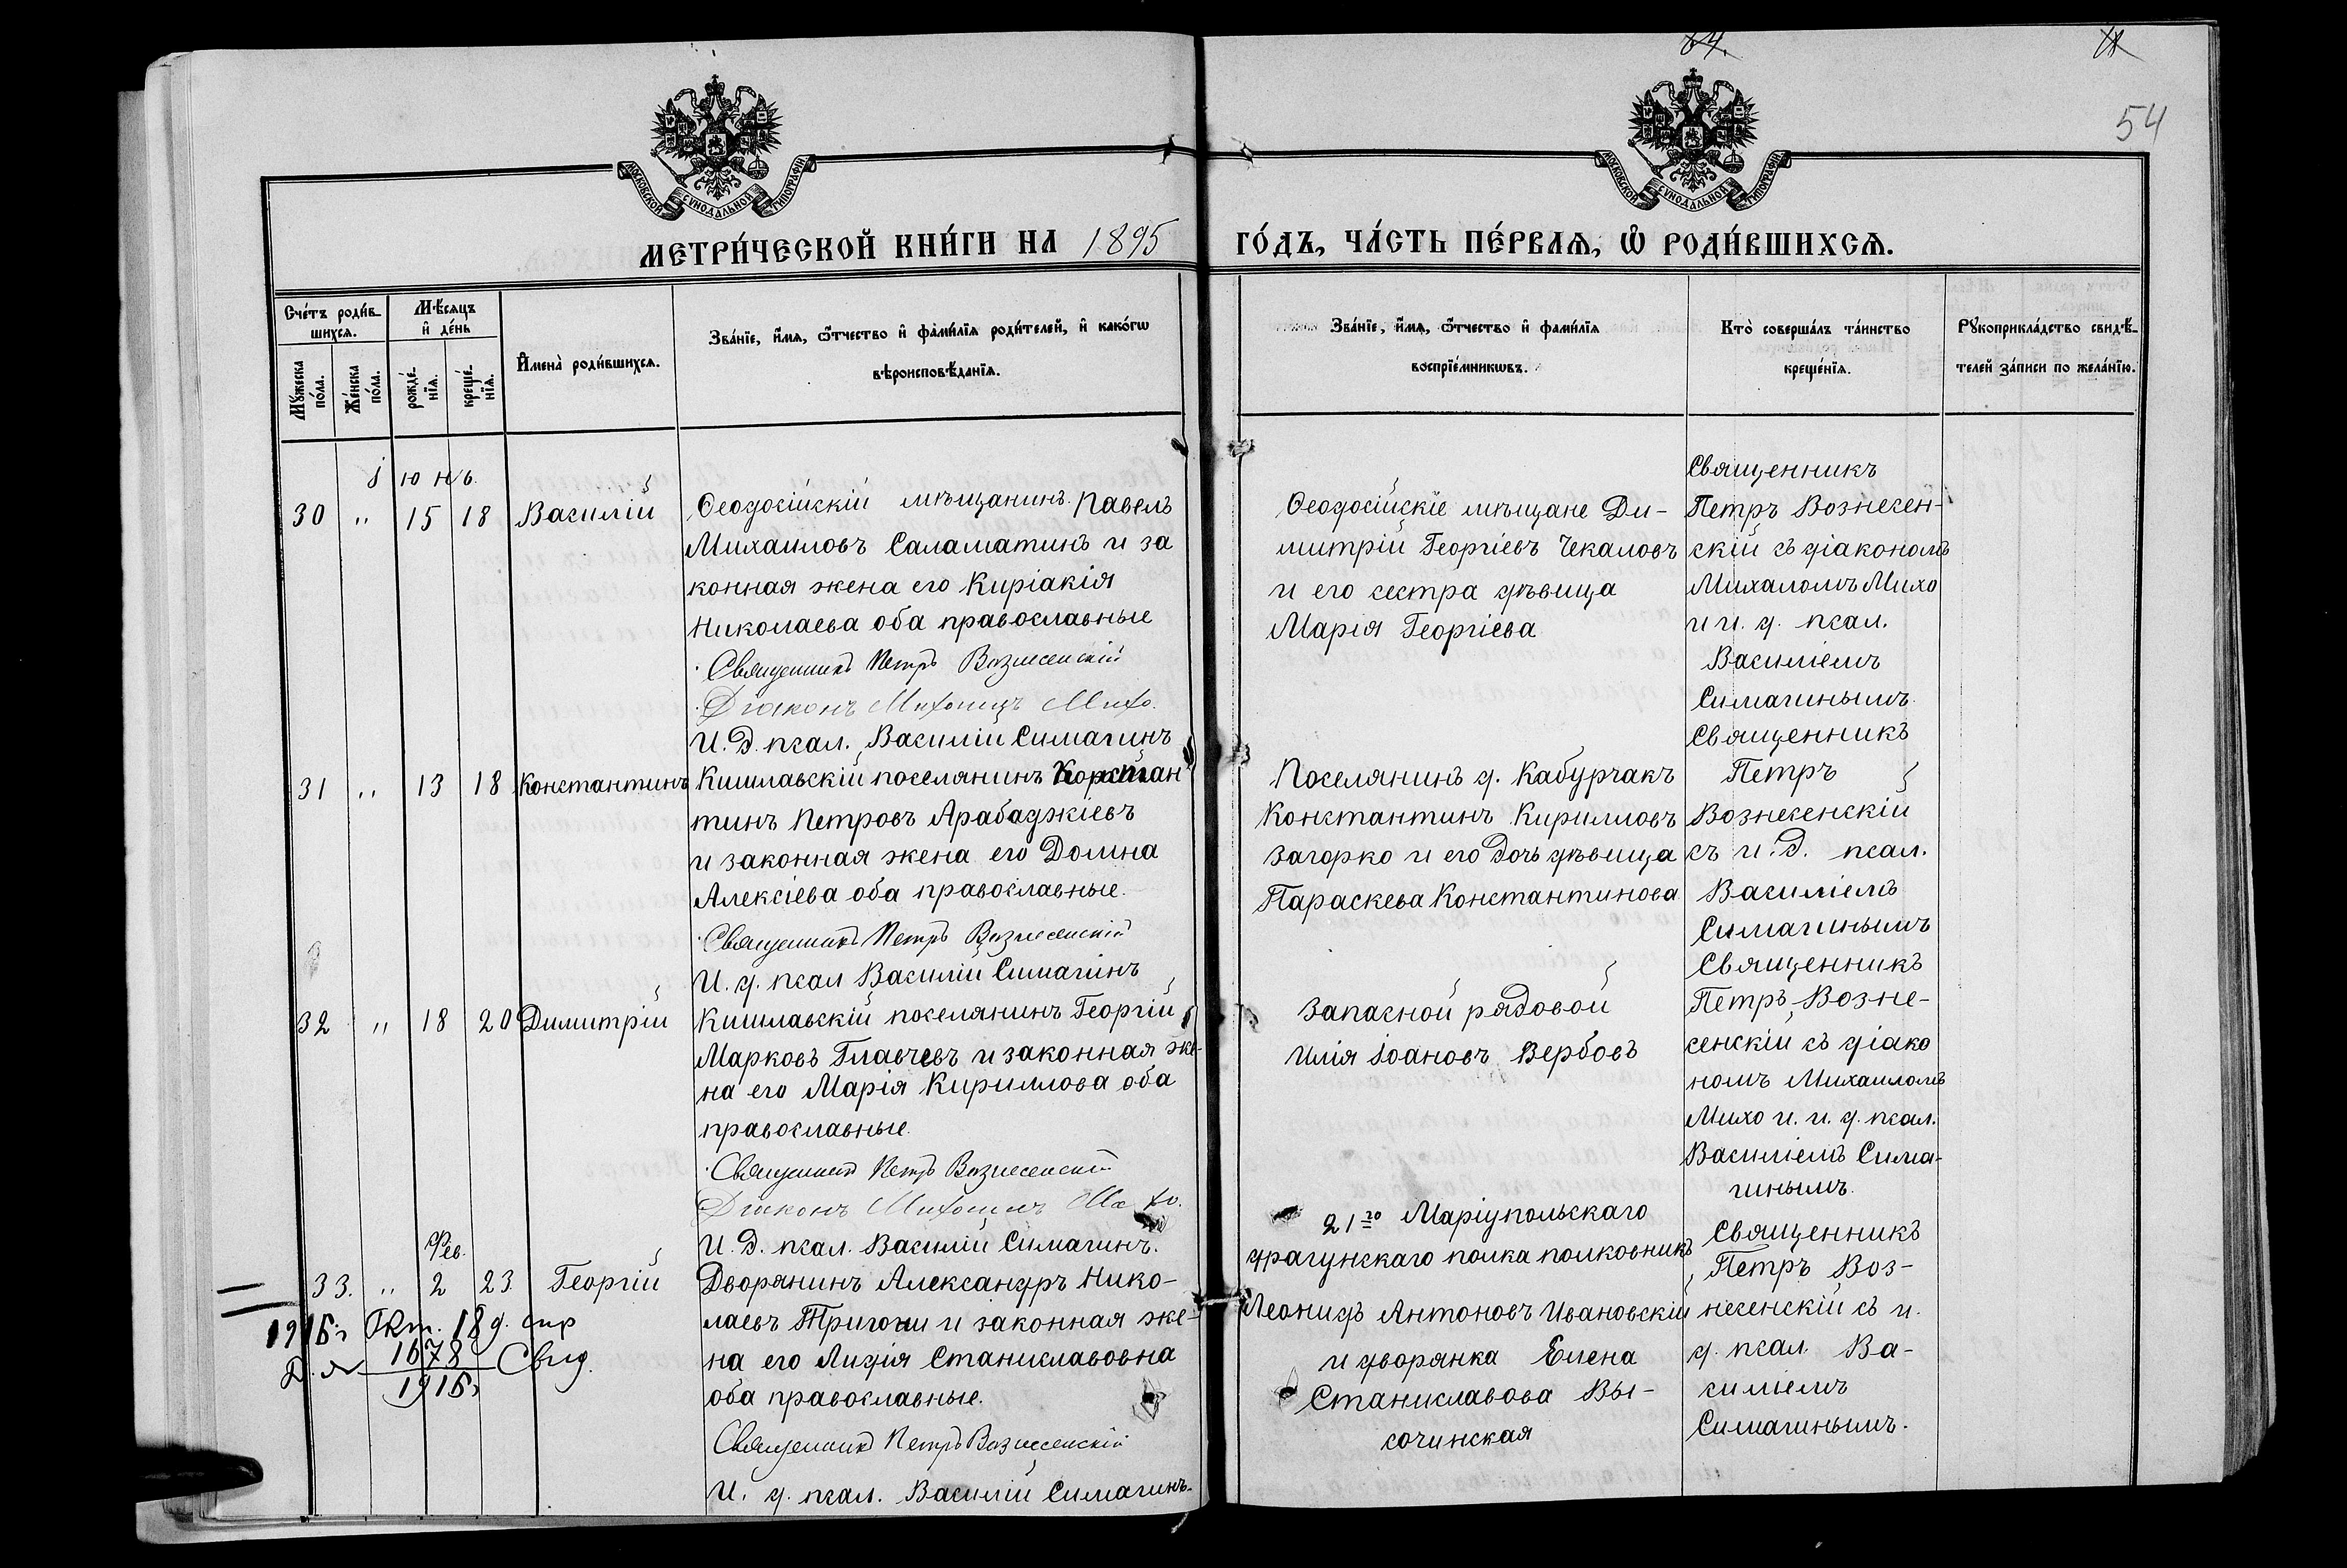 64.
54
МОСКОВСКОЙ СУНОДАЛЬНОЙ ТИПОГРАФІИ
МОСКОВСКОЙ СУНОДАЛЬНОЙ ТИПОГРАФІИ
МЕТРИ́ЧЕСКОЙ КНИ́ГИ НА 1895
ГО́ДЪ, ЧА́СТЬ ПЕ́РВАѦ, Ѡ РОДИ́ВШИХСѦ.
Сче́тъ роди́в-
шихсѧ.
Мꙋжеска
по́ла.
Же́нска
по́ла.
Мѣ́сѧцъ
и҆ де́нь
рожде́-
нїѧ.
креще́-
нїѧ.
И҆мена̀ роди́вшихсѧ.
Зва́нїе, и҆́мѧ, ѻ҆́тчество и҆ фами́лїѧ роди́телей, и҆ како́гѡ
вѣроисповѣ́данїѧ.
Зва́нїе, и҆́мѧ, ѻ҆́тчество и҆ фами́лїѧ
воспрїе́мникѡвъ.
Кто̀ соверша́лъ та́инство
креще́нїѧ.
Рꙋкоприкла́дство свидѣ́-
телей за́писи по жела́нїю.
іюнь
30 " 15 18 Василій
Ѳеодосійскій мѣщанинъ Павелъ
Михаиловъ Саламатинъ и за
конная жена его Киріакія
Николаева оба православные
Священникъ Петръ Вознесенскій
Діаконъ Михаилъ Михо.
И. Д. псал. Василій Симагинъ
Ѳеодосійскіе мѣщане Ди-
митрій Георгіевъ Чекаловъ
и его сестра дѣвица
Марія Георгіева
Священникъ
Петръ Вознесен-
скій съ діакономъ
Михаломъ Михо
и и. д. псал.
Василіемъ
Симагинымъ.
31 " 13 18 Константинъ
Кишлавскій поселянинъ Констан
тинъ Петровъ Арабаджіевъ
и законная жена его Домна
Алексіева оба православные.
Священникъ Петръ Вознесенскій
И. д. псал Василій Симагинъ
Поселянинъ д. Кабурчакъ
Константинъ Кирилловъ
Загорко и его дочь дѣвица
Параскева Константинова
Священникъ
Петръ
Вознесенскій
съ и. д. псал.
Василіемъ
Симагинымъ
32 " 18 20 Димитрій
Кишлавскій поселянинъ Георгій
Марковъ Главчевъ и законная же-
на его Марія Кириллова оба
православные.
Священникъ Петръ Вознесенскій
Діаконъ Михаилъ Михо.
И. Д. псал. Василій Симагинъ.
Запасной рядовой
Илія Іоановъ Вербовъ
Священникъ
Петръ Возне-
сенскій съ діако
номъ Михаиломъ
Михо и. и. д. псал.
Василіемъ Сима-
гинымъ.
Фев.
33. " 2 23 Георгій
Дворянинъ Александръ Нико-
лаевъ Тригони и законная же-
на его Лидія Станиславовна
оба православные.
Священникъ Петръ Вознесенскій
И. д. псал. Василій Симагинъ.
21го Маріупольскаго
драгунскаго полка полковникъ
Леонидъ Антоновъ Ивановскій
и дворянка Елена
Станиславова Вы-
сочинская
Священникъ
Петръ Воз-
несенскій съ и.
д. псал. Ва-
силіемъ
Симагинымъ.
Окт. 18 д.
1678
Свид.